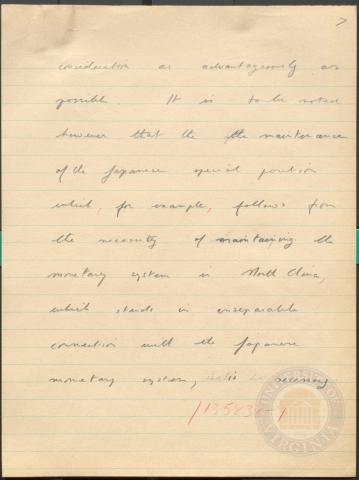 7
consideration as advantageously as
possible. It is to be noted
however that the the maintenance
of the Japanese special position
which, for example, follows from
the necessity of maintaining the
monetary system in North China,
which stands in inseparable
connection with the Japanese
monetary system, necessary.
UNIVERSITY OF VIRGINIA